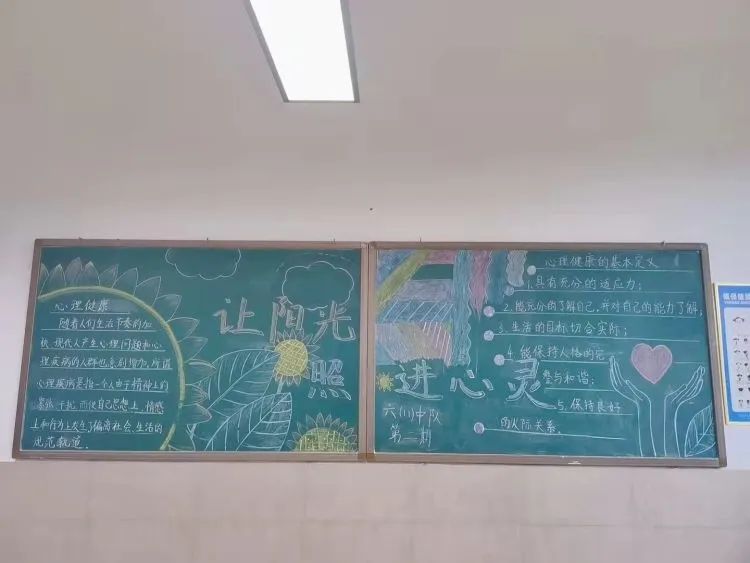 心理健康
随着人们生活节奏的加
快,现代人产生心理问题和心
理疾病的人群也急剧增加,所谓
心理疾病是指一个人由于精神上的
紧张,干扰,而使自己思想上、情感
上和行为上发生了偏离社会、生活的
规范轨道.
让阳光
照
进心灵
六(1)中队
第二期
心理健康的基本定义
1.具有充分的适应力;
2.能充分的了解自己,并对自己的能力了解;
3.生活的目标切合实际;
4.能保持人格的完
整与和谐;
保持良好
的人际关系.